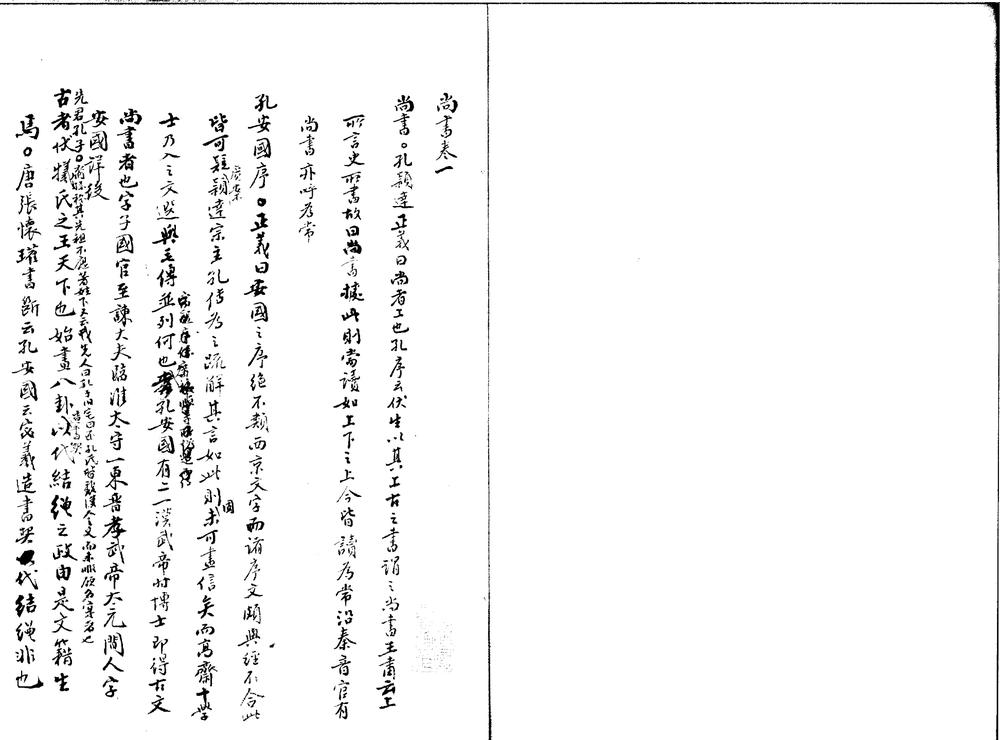 尚書卷一
尚書。孔穎達正義曰尚者上也孔序云伏生以其上古之書謂之尚書王肅云上
所言史所書故曰尚書據此則當讀如上下之上今皆讀為常沿秦音官有
尚書亦呼為常
孔安國序。正義曰安國之序絕不類西京文字而諸序文頗與經不合此
皆可疑穎達宗主孔傳為之疏解其言如此則固未可盡信矣而高齋十學
士乃入之文選與毛傳並列何也孔安國有二一漢武帝時博士即得古文
尚書者也字子國官至諫大夫臨淮太守一東晉孝武帝太元間人字
安國詳後
先君孔子。
古者伏犧氏之王天下也始畫八卦以代結繩之政由是文籍生
焉。唐張懷瓘書斷云孔安國云宓羲造書契以代結繩非也